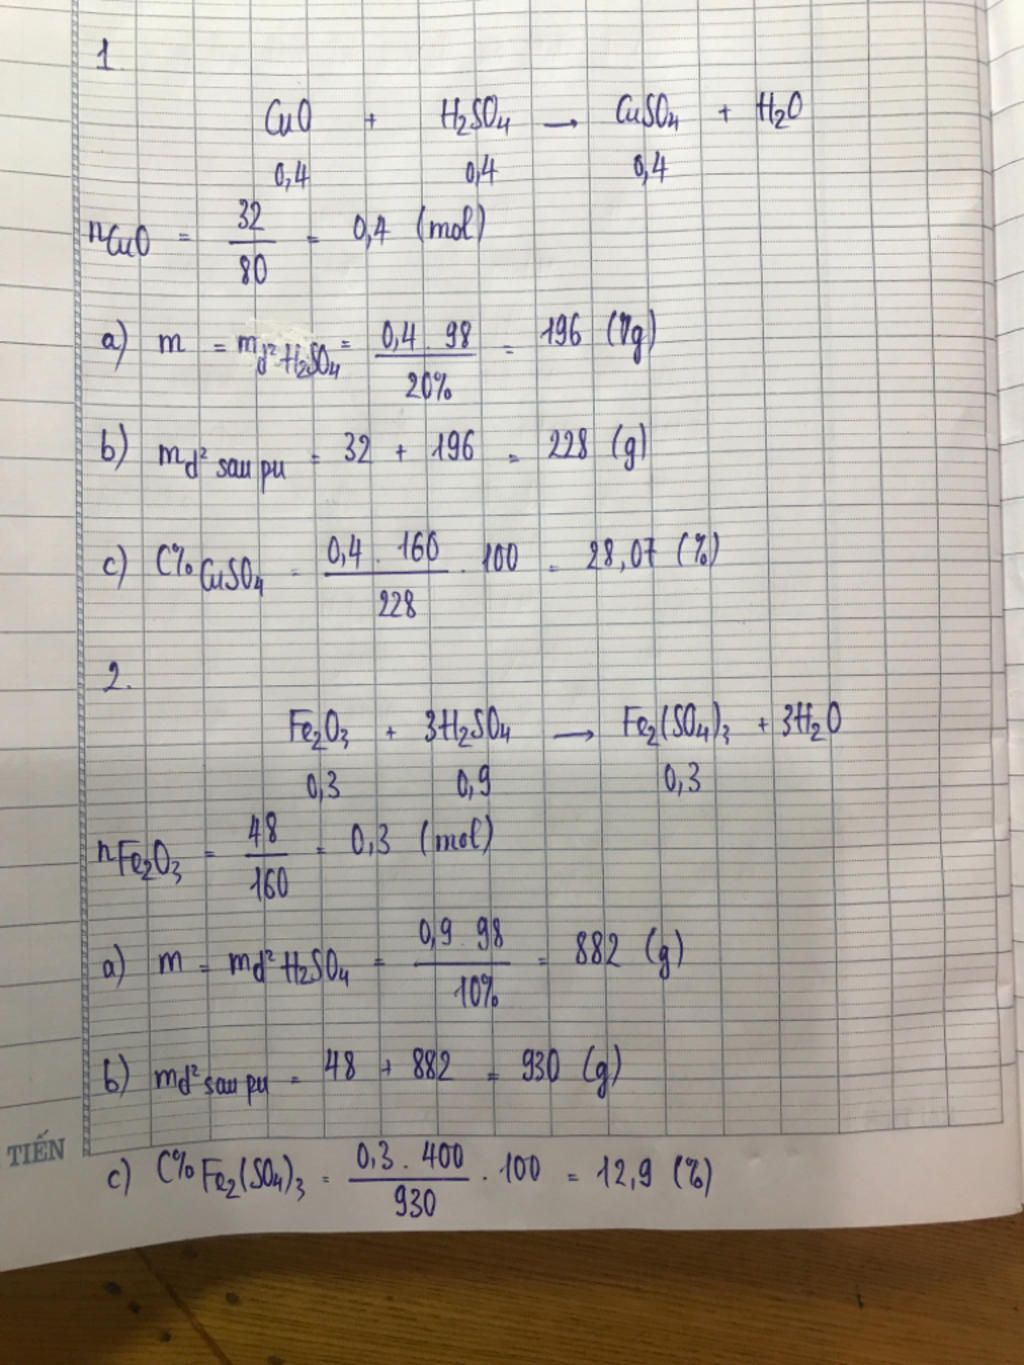 1
CuO + H₂SO₄ → CuSO₄ + H₂O
0,4 0,4 0,4
nCuO = 32/80 = 0,4 (mol)
a) m = m d² H₂SO₄ = 0,4 . 98/20% = 196 (g)
b) m d² sau pu = 32 + 196 = 228 (g)
c) C% CuSO₄ = 0,4 . 160/228 . 100 = 28,07 (%)
2.
Fe₂O₃ + 3H₂SO₄ → Fe₂(SO₄)₃ + 3H₂O
0,3 0,9 0,3
nFe₂O₃ = 48/160 = 0,3 (mol)
a) m = md² H₂SO₄ = 0,9 . 98/10% = 882 (g)
b) md² sau pu = 48 + 882 = 930 (g)
TIẾN
c) C% Fe₂(SO₄)₃ = 0,3 . 400/930 . 100 = 12,9 (%)